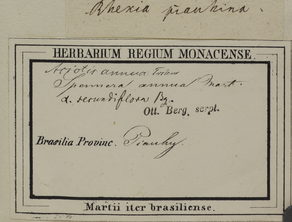 Rhexia piauhina.
HERBARIUM REGIUM MONACENSE.
Acjotis annua Triana
Spennera annua Mart.
α. secundiflora Bg.
Ott. Berg. scrpt.
Brasilia Provinc. Piauhy.
Martii iter brasiliense.